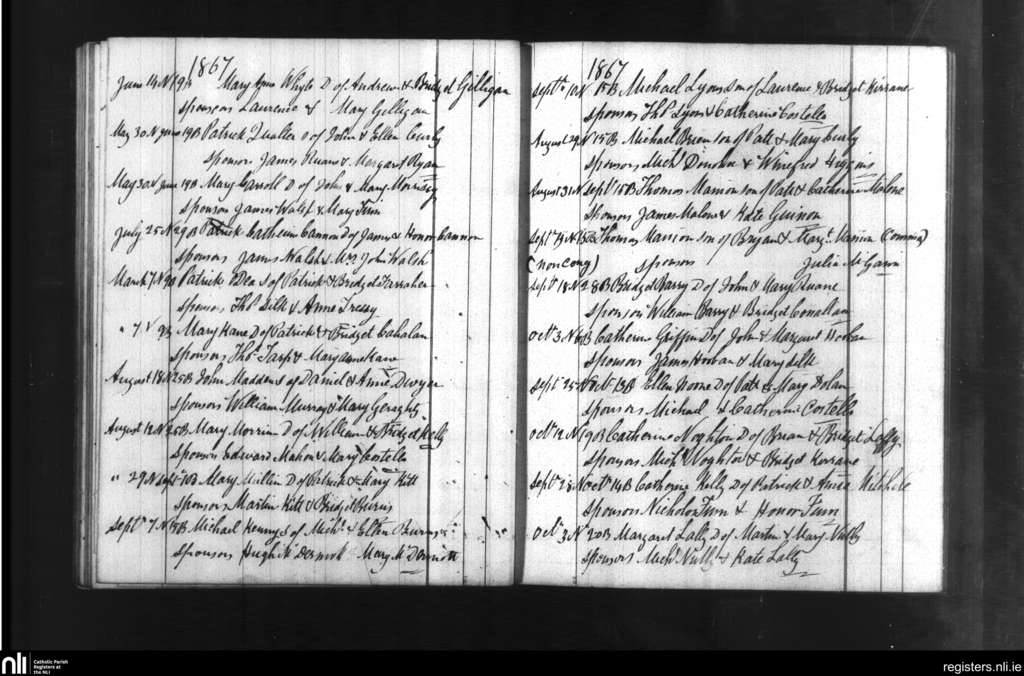 1867
June 14 N 19B Mary Anne Whyte D of Andrew & Bridget Gilligan
Sponsors Laurence & Mary Gilligan
May 30 N June 19B Patrick Qualter S of John & Ellen Curly
Sponsors James Ruane & Margaret Ryan
May 30 N June 19B Mary Carroll D of John & Mary Morrisey
Sponsors James Walsh & Mary Finn
July 25 N 29B Patrick Catherine Cannon D of James & Honor Cannon
Sponsors James Walsh & Mrs John Walsh
March 7 N 9B Patrick O Dea S of Patrick & Bridget Farraher
Sponsors Thos Silk & Anne Treacy
" 7 N 9B Mary Kane D of Patrick & Bridget Cahalan
Sponsors Thos & Mary Anne Kane
August 18 N 25B John Madden S of Daniel & Annie Dwyer
Sponsors William Murray & Mary Geraghty
August 12 N 25B Mary Morrin D of William & Bridget Kelly
Sponsors Edward Mahon & Mary Costello
" 29 N Sept 7B Mary Mullin D of Patrick & Mary Kitt
Sponsors Martin Kitt & Bridget Burns
Septr 7 N 15B Michael Kenny S of Michl & Ellen Burns
Sponsors Hugh McDermott Mary McDermott
1867
Septr 10 N 15B Michael Lyons Son of Laurence & Bridget Kirrane
Sponsors Thos Lyons & Catherine Costello
August 29 N 15B Michael Brien son of Patt & Mary Curly
Sponsors Michl Donovan & Winefred Higgins
August 31 N Septr 15B Thomas Mannion son of Patt & Catherine Malone
Sponsors James Malone & Kate Guinon
Septr N 15B Thomas Mannion son of Bryan & Margt Mannion
(non cong) Sponsors Julia McGann
Septr 18 N 28B Bridget Barry D of John & Mary Ruane
Sponsors William Barry & Bridget
Octr 3 N 6B Catherine Griffin D of John & Margaret Hoban
Sponsors James Hoban & Mary Silk
Septr 25 N Octr 13B Ellen Noone D of Patt & Mary Dolan
Sponsors Michael & Catherine Costello
Octr 12 N 19B Catherine Noghton D of Brian & Bridget Laffy
Sponsors Michl Noghton & Bridget Kerrane
Septr N Octr 14B Catherine Kelly D of Patrick & Anne Mitchell
Sponsors Nicholas Finn & Honor Finn
Octr 3 N 20B Margaret Lally D of Martin & Mary Nally
Sponsors Michl Nally & Kate Lally
nli
Catholic Parish
Registers at
the NLI
registers.nli.ie